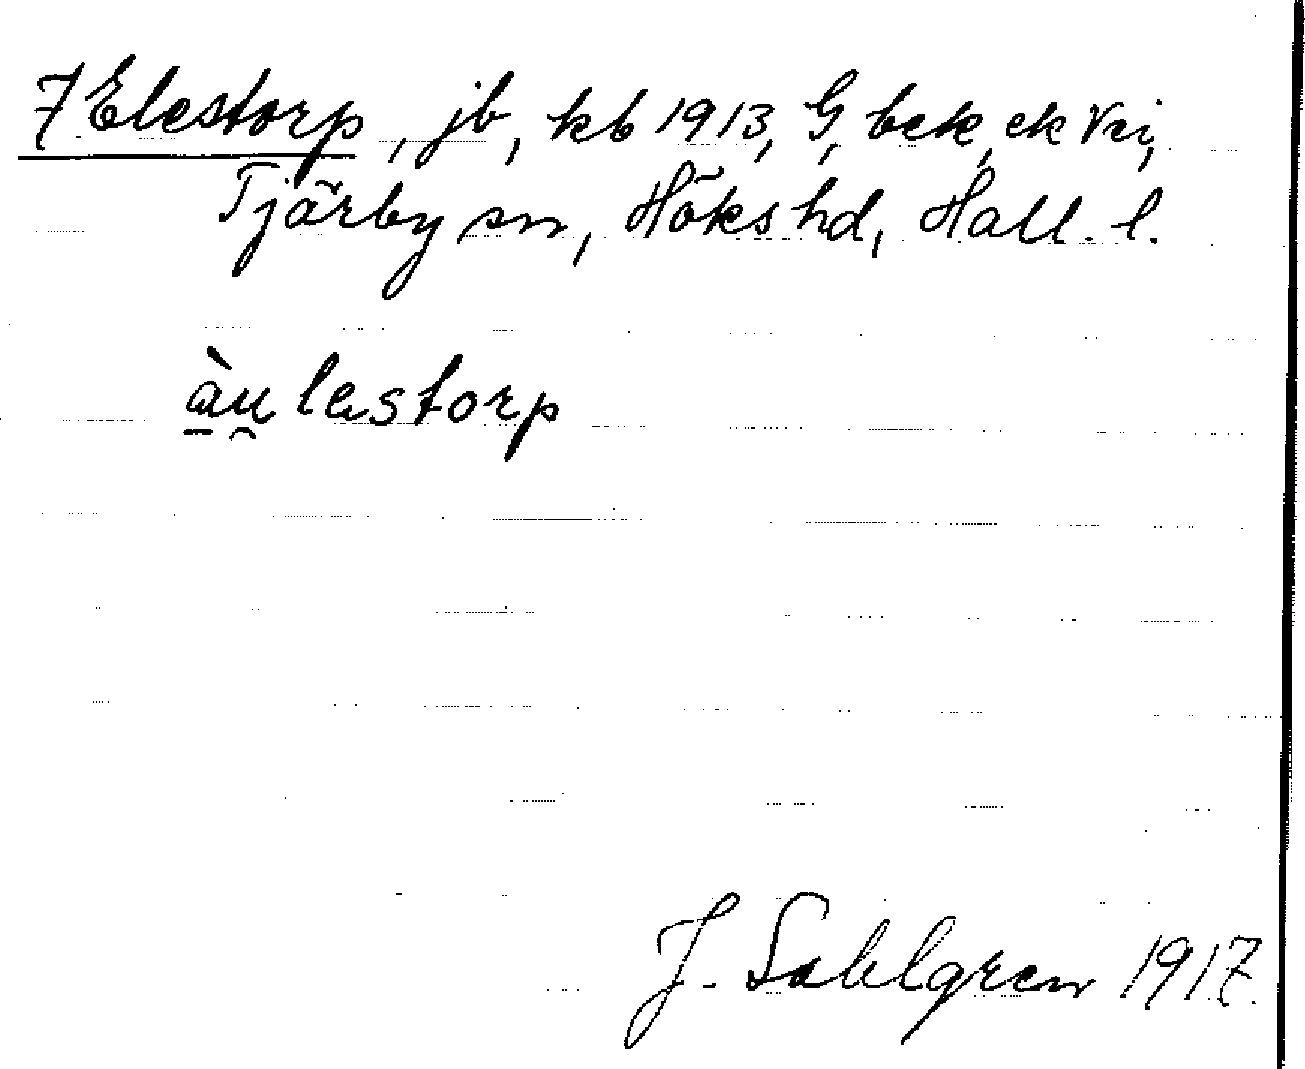 7 Elestorp, jb, kb 1913, G, bek, ek Vej,
Tjärby sn, Höks hd, Hall. l.
àu̯lestorp
J. Sahlgren 1917.